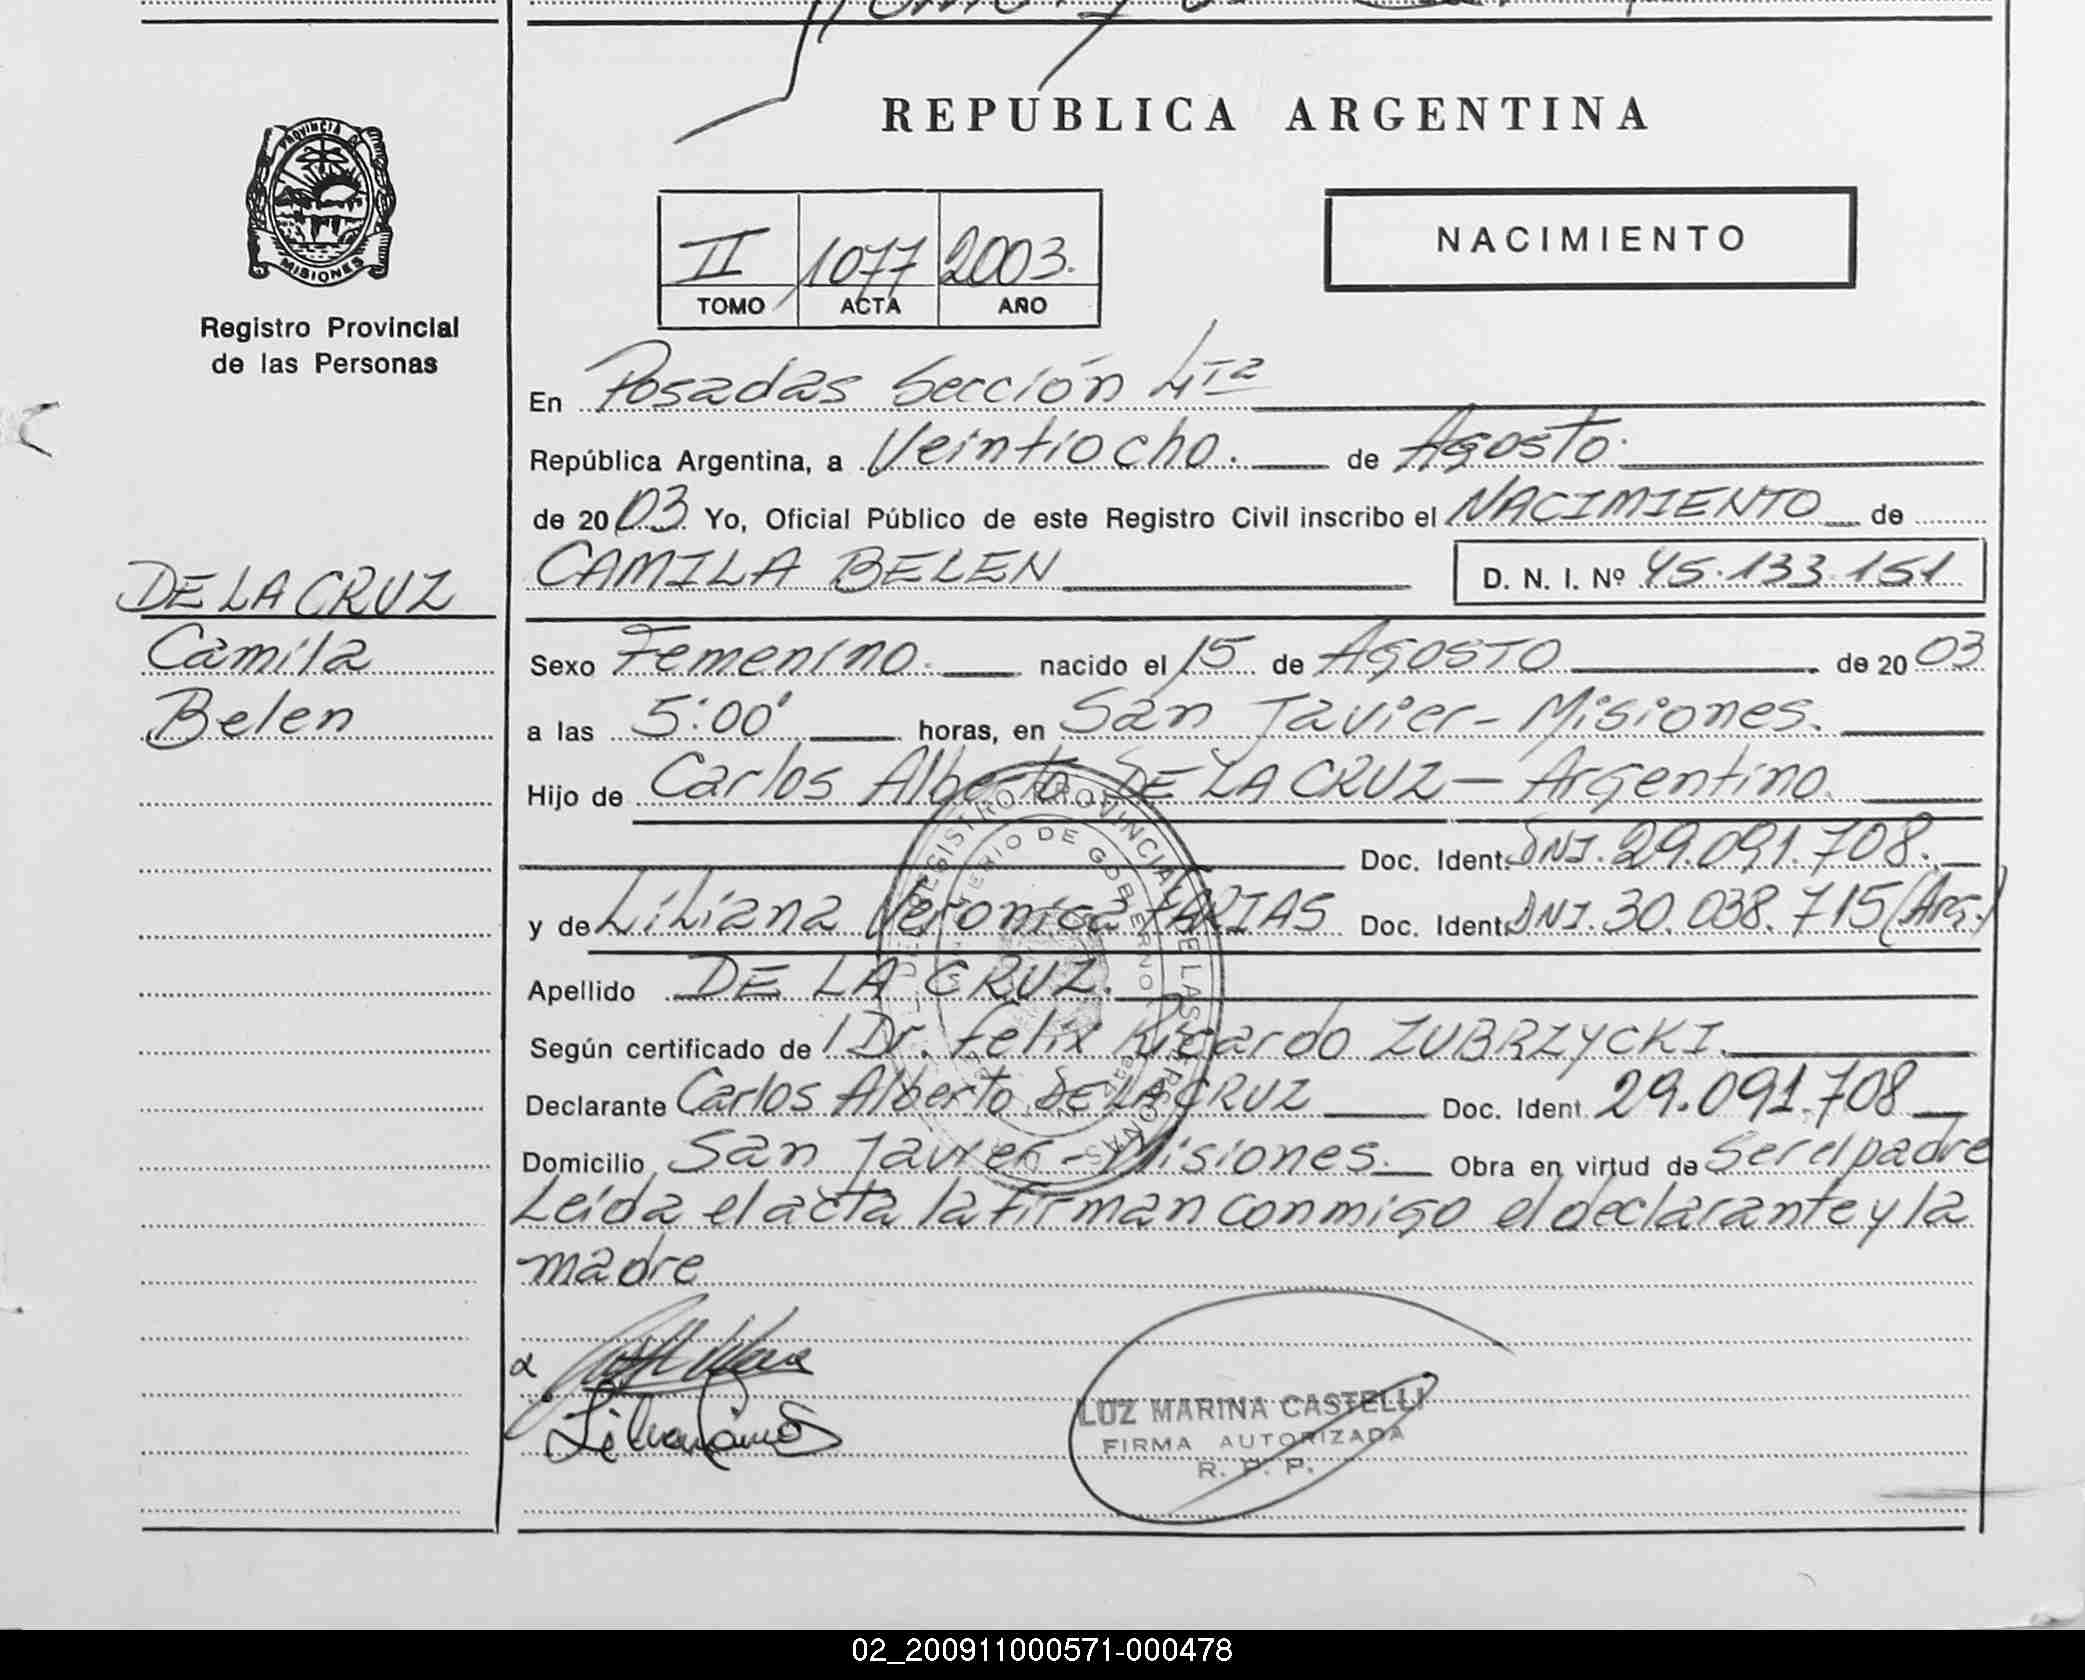 REPUBLICA ARGENTINA
PROVINCIA DE
MISIONES
Registro Provincial
de las Personas
II 1077 2003.
TOMO ACTA AÑO
NACIMIENTO
En Posadas Sección 4ta
República Argentina, a Veintiocho. de Agosto.
de 2003 Yo, Oficial Público de este Registro Civil inscribo el NACIMIENTO de
CAMILA BELEN D. N. I. Nº 45.133.151
DE LA CRUZ
Camila
Belen
Sexo Femenino. nacido el 15 de AGOSTO de 2003
a las 5:00' horas, en San Javier - Misiones.
Hijo de Carlos Alberto DE LA CRUZ - Argentino.
Doc. Ident. DNI. 29.091.708.
y de Liliana Veronica FARIAS Doc. Ident. DNI. 30.038.715 (Arg.)
Apellido DE LA CRUZ.
Según certificado de Dr. Felix Ricardo ZUBRZYCKI.
Declarante Carlos Alberto DE LA CRUZ Doc. Ident 29.091.708
Domicilio San Javier - Misiones. Obra en virtud de Ser el padre
Leída el acta la firman conmigo el declarante y la
madre
REGISTRO PROVINCIAL DE LAS PERSONAS
MINISTERIO DE GOBIERNO
LUZ MARINA CASTELLI
FIRMA AUTORIZADA
R. P. P.
02_200911000571-000478